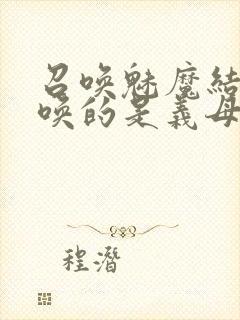 召唤魅魔结
唤的是义母
程潛